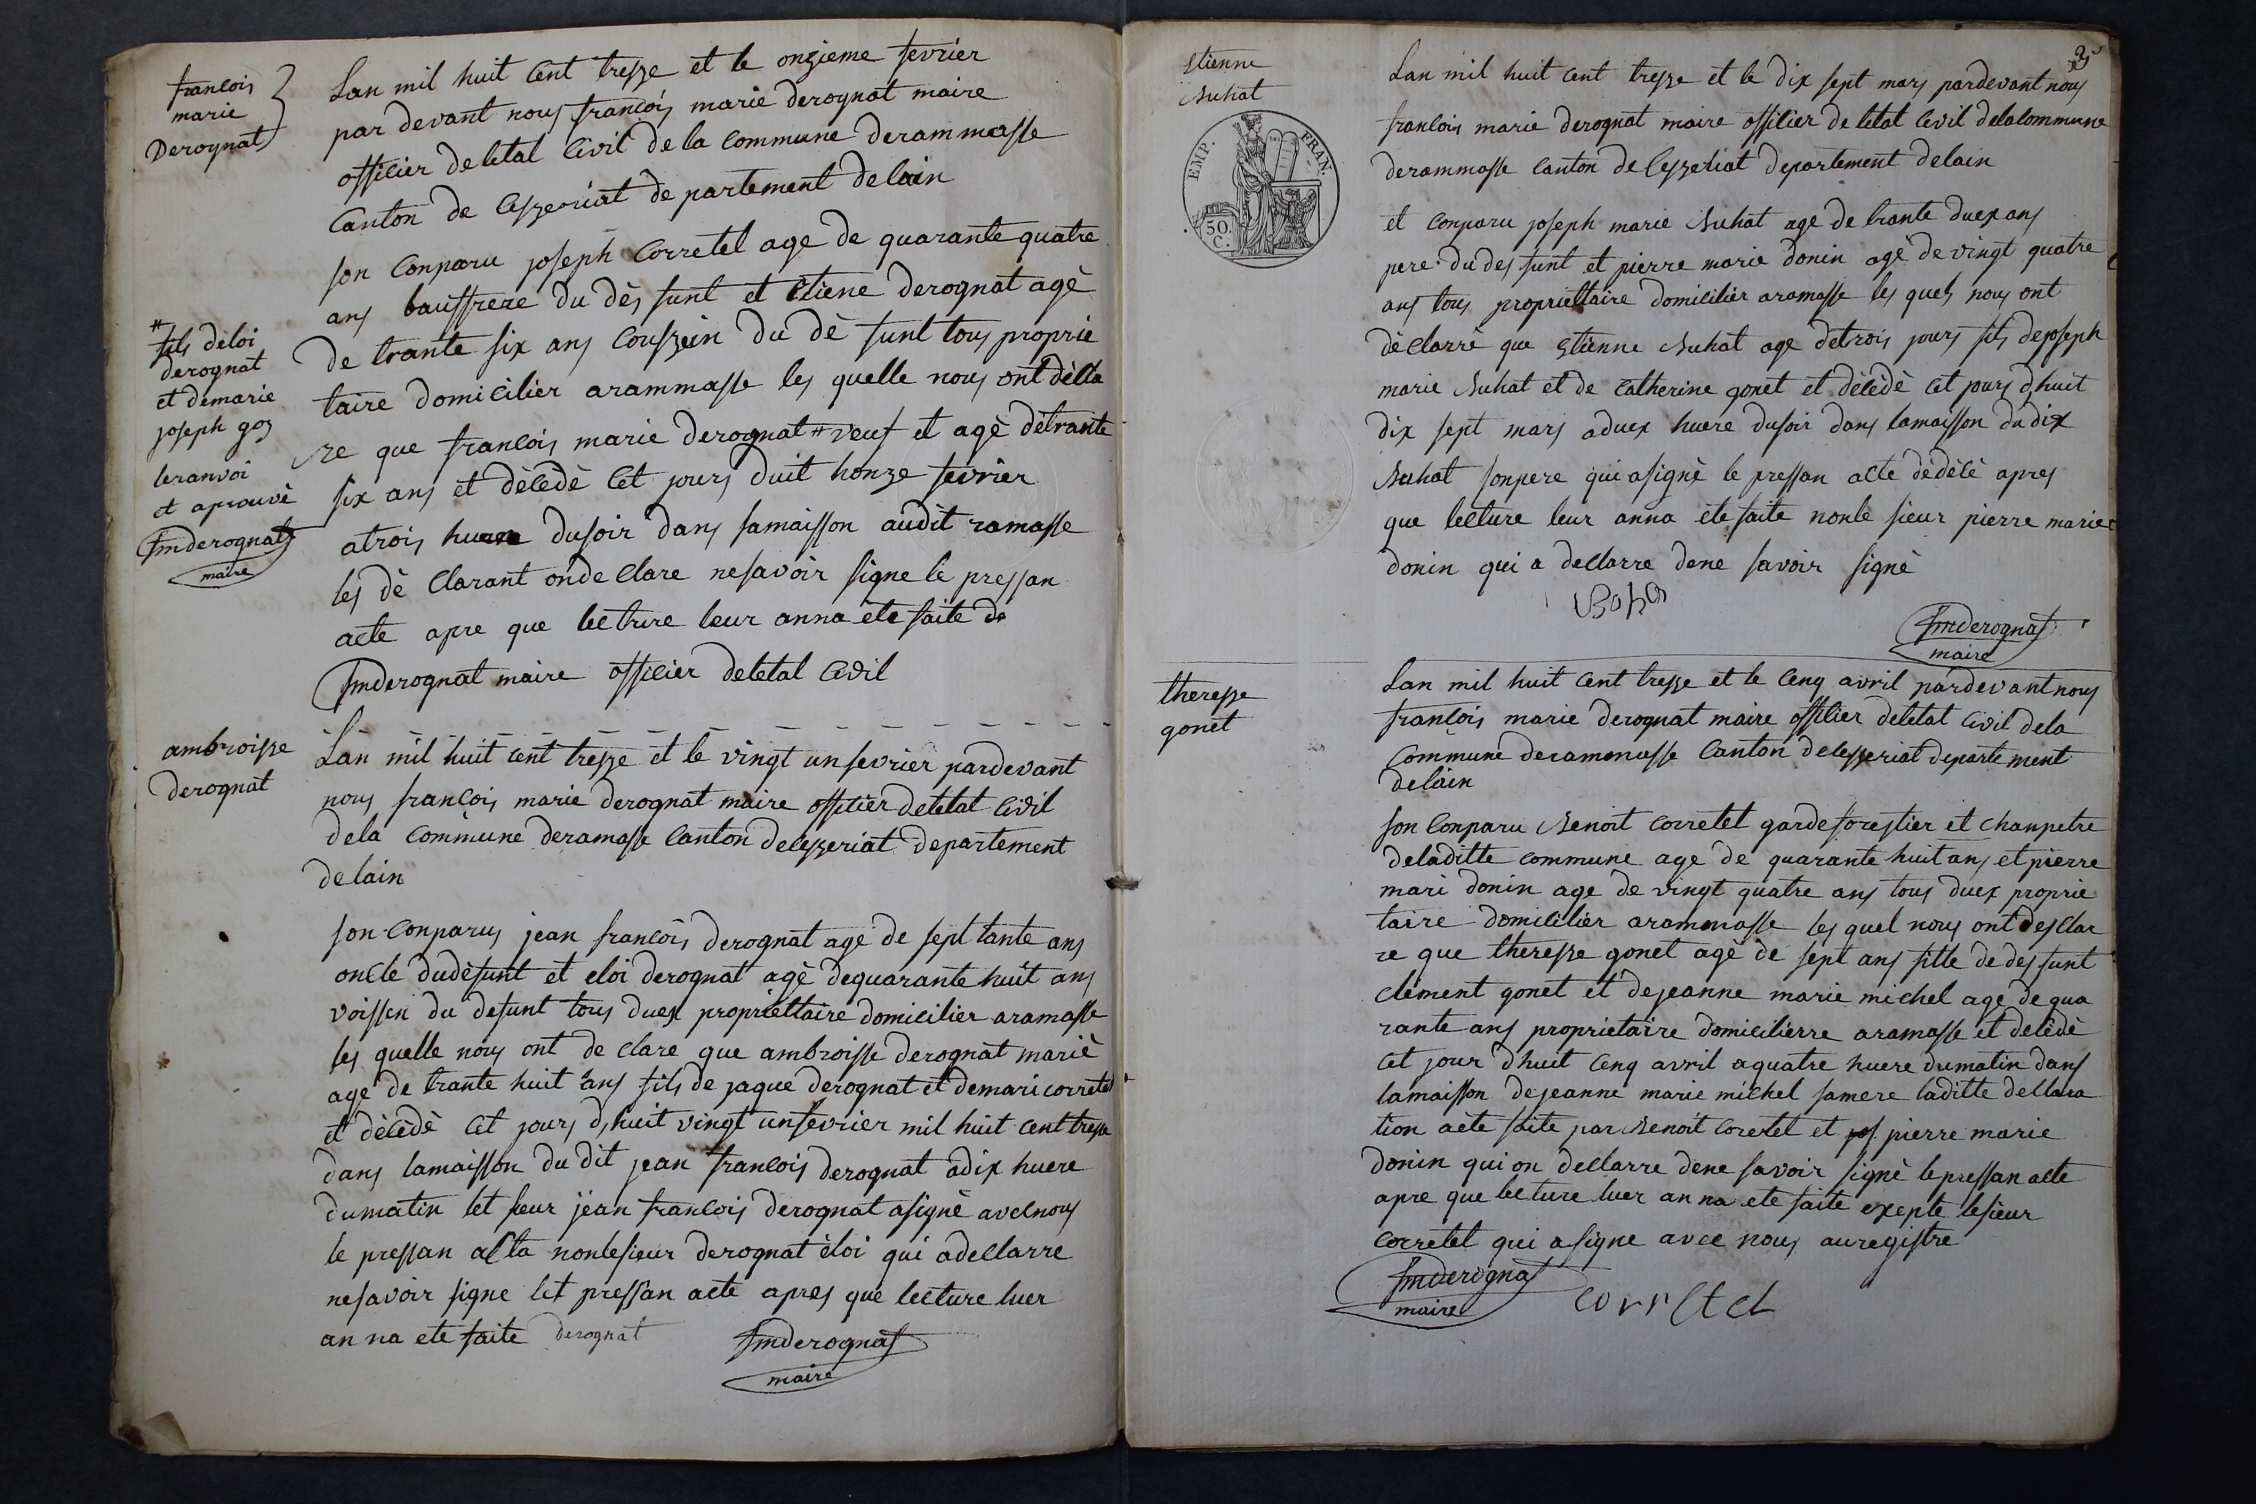 francois
marie
Derognat
Lan mil huit cent tresze et le onzieme fevrier
par devant nous francois marie derognat maire
officier de letat civil de la commune derammasse
canton de Ceszeriat de partement delain
son conparu joseph Corretel age de quarante quatre
ans bauffrere du dèsfunt et Etiene derognat agè
de trante six ans couszein du dè funt tous proprie
taire domicilier arammasse les quelle nous ont dècla
re que francois marie derognat # veuf et agè dètrante
six ans et dècèdè Cet jours duit honze fevrier
atrois huere dusoir dans samaisson audit ramasse
les dè Clarant onde Clare nesavoir signe le pressan
acte apre que lecture leur anna ète faite de
fmderognat maire officier deletat Civil
# fils deloi
derognat
et demarie
joseph goz
leranvoi
et aprouvè
fmderognat
maire
ambroisse
derognat
Lan mil huit cent tresze et le vingt un fevrier pardevant
nous francois marie derognat maire officier deletat Civil
dela commune deramasse Canton deceszeriat departement
delain
son conparus jean francois derognat age de sept tante ans
oncle dudèfunt et eloi derognat agè dequarante huit ans
voissen du defunt tous duex propriettaire domicilier aramasse
les quelle nous ont de clare que ambroisse derognat mariè
age de trante huit ans fils de jaque derognat et demari corretel
et dècèdè Cet jours dhuit vingt unfevrier mil huit cent tresze
dans lamaisson du dit jean francois derognat adix huere
dumatin let sieur jean francois derognat asignè avec nous
le pressan acta nonlesieur derognat èloi qui adeclarre
nesavoir signe let pressan acte apres que lecture luer
an na ete faite derognat
fmderognat
maire
35
Etienne
Buhat
EMP. FRAN.
50.
C.
Lan mil huit cent tresze et le dix sept mars pardevant nous
francois marie derognat maire officier de letat Civil delacommune
derammasse canton de Ceszeriat departement delain
et conparu joseph marie Buhat age de trante duex ans
pere du des funt et pierre marie donin agè de vingt quatre
ans tous propriettaire domicilier aramasse les quels nous ont
dè clarrè que Etienne Buhat age detrois jours fils dejoseph
marie Buhat et de Catherine gonet et dècèdè Cet jours dhuit
dix sept mars aduex huere dusoir dans lamaisson du dix
Buhat sonpere qui asignè le pressan acte dèdècè apres
que lecture leur anna ète faite nonle sieur pierre marie
donin qui a declarre dene savoir signè
fmderognat
maire
theresze
gonet
Lan mil huit cent tresze et le Cenq avril pardevant nous
francois marie derognat maire officier deletat Civil dela
Commune derammasse Canton deceszeriat departement
delain
son Conparu Benoit corretet gardeforestier et chanpetre
deladitte commune age de quarante huit ans et pierre
mari donin age de vingt quatre ans tous duex proprie
taire domicilier arammasse les quel nous ont desclar
re que theresze gonet agè de sept ans fille de des funt
clement gonet et dejeanne marie michel age de qua
rante ans proprietaire domicilierre aramasse et decèdè
Cet jour dhuit Cenq avril aquatre huere dumatin dans
lamaisson dejeanne marie michel samere laditte declara
tion aète faite par Benoit coretet et pierre marie
donin qui on declarre dene savoir signè lepressan acte
apre que lecture luer an na ete faite exepte lesieur
corretet qui a signe avec nous auregistre
fmderognat
maire
corretet